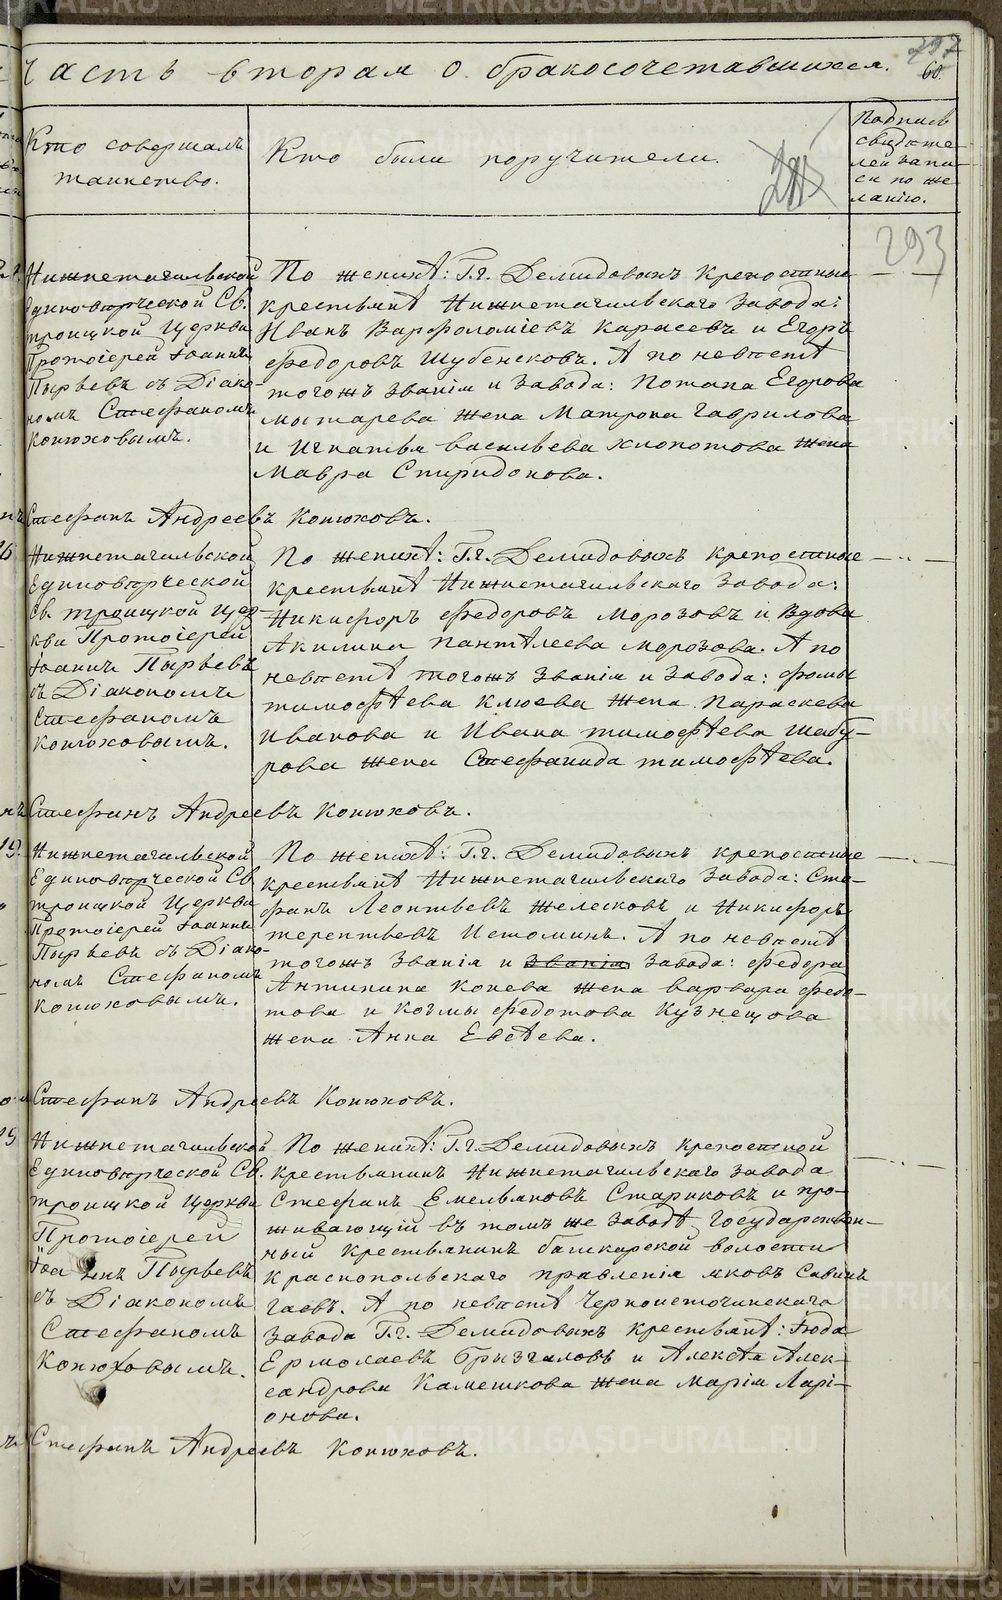 METRIKI.GASO-URAL.RU
Часть вторая о бракосочетавшихся.
297
60.
Кто совершалъ
таинство.
Кто были поручители.
Подпись
свидѣте-
лей запи-
си по же-
ланію.
293
Нижнетагильской
Единовѣрческой Св.
Троицкой Церкви
Протоіерей Іоаннъ
Пырьевъ съ Діако-
номъ Стефаномъ
Конюховымъ.
По женихѣ: Г.г. Демидовыхъ крепостные
крестьянѣ Нижнетагильскаго завода:
Иванъ Варфоломіевъ Карасевъ и Егоръ
Федоровъ Шубенсковъ. А по невѣстѣ
тогожъ званія и завода: Потапа Егорова
Мытарева жена Матрона Гаврилова
и Игнатья Васильева Хлопотова жена
Мавра Спиридонова.
Стефанъ Андреевъ Конюховъ.
Нижнетагильской
Единовѣрческой
Св. Троицкой Цер-
кви Протоіерей
Іоаннъ Пырьевъ
съ Діакономъ
Стефаномъ
Конюховымъ.
По женихѣ: Г.г. Демидовыхъ крепостные
крестьянѣ Нижнетагильскаго завода:
Никифоръ Федоровъ Морозовъ и вдова
Акилина Пантѣлеева Морозова. А по
невѣстѣ тогожъ званія и завода: Фомы
Тимофѣева Клюева жена Параскева
Иванова и Ивана Тимофѣева Шабу-
рова жена Стефанида Тимофѣева.
Стефанъ Андреевъ Конюховъ.
19.
Нижнетагильской
Единовѣрческой Св.
Троицкой Церкви
Протоіерей Іоаннъ
Пырьевъ съ Діако-
номъ Стефаномъ
Конюховымъ.
По женихѣ: Г.г. Демидовыхъ крепостные
крестьянѣ Нижнетагильскаго завода: Сте-
фанъ Леонтьевъ Желесковъ и Никифоръ
Терентьевъ Истоминъ. А по невѣстѣ
тогожъ званія и званія завода: Федора
Антипина Конева жена Варвара Федо-
това и Козмы Федотова Кузнецова
жена Анна Евсѣева.
Стефанъ Андреевъ Конюховъ.
Нижнетагильской
Единовѣрческой Св.
Троицкой Церкви
Протоіерей
Іоаннъ Пырьевъ
съ Діакономъ
Стефаномъ
Конюховымъ.
По женихѣ: Г.г. Демидовыхъ крепостной
крестьянинъ Нижнетагильскаго завода
Стефанъ Емельяновъ Стариковъ и про-
живающій въ томъ же заводѣ Государствен-
ный крестьянинъ Башкарской волости
Краснопольскаго правленія Яковъ Савинъ
Гаевъ. А по невѣстѣ Черноисточинскаго
завода Г.г. Демидовыхъ крестьянѣ: Іюда
Ермолаевъ Брызгаловъ и Алексѣя Алек-
сандрова Камешкова жена Марія Ларі-
онова.
Стефанъ Андреевъ Конюховъ.
METRIKI.GASO-URAL.RU